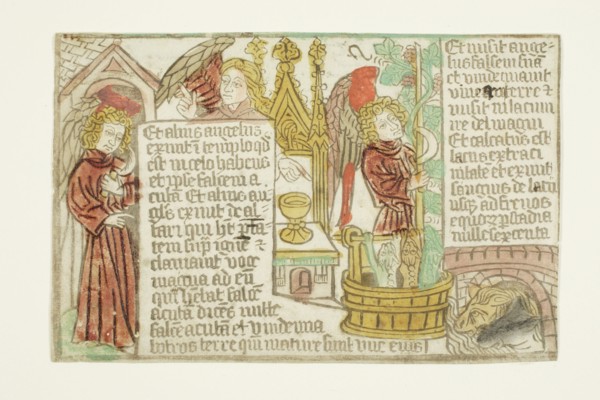 Et alius angelus
exivit de templo qd
est in celo habens
et ipse falcem a
cutã Et alius an
gls exivit de al
tari qui ht ptãa
tem sup ignẽ et
clamavit voce
magna ad eũ
qui hẽbat falcẽ
acutã dicẽs mitte
falcẽ acutã et vindemia
botros terre qui mature sunt vue eius
Et misit ange
lus falcem suã
et vindemiavit
vineã terre et
misit in lacum
ire dei magni
Et calcatus est
lacus extra ci
vitate et exivit
sanguis de lacu
usq ad frenos
equorz p stadia
mille sexcenta